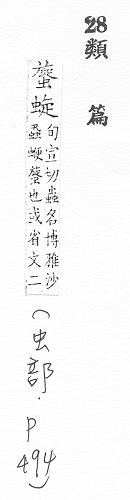 28
類篇
䗠蜁
旬宣切蟲名博雅沙
蝨䗠也或省文二
(虫部.P494)